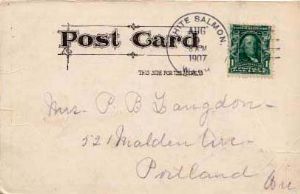 WHITE SALMON,
AUG
1907
Post Card
THIS SIDE FOR THE ADDRESS
Mrs. P. B. Langdon
521 Malden Ave.
Portland Ore